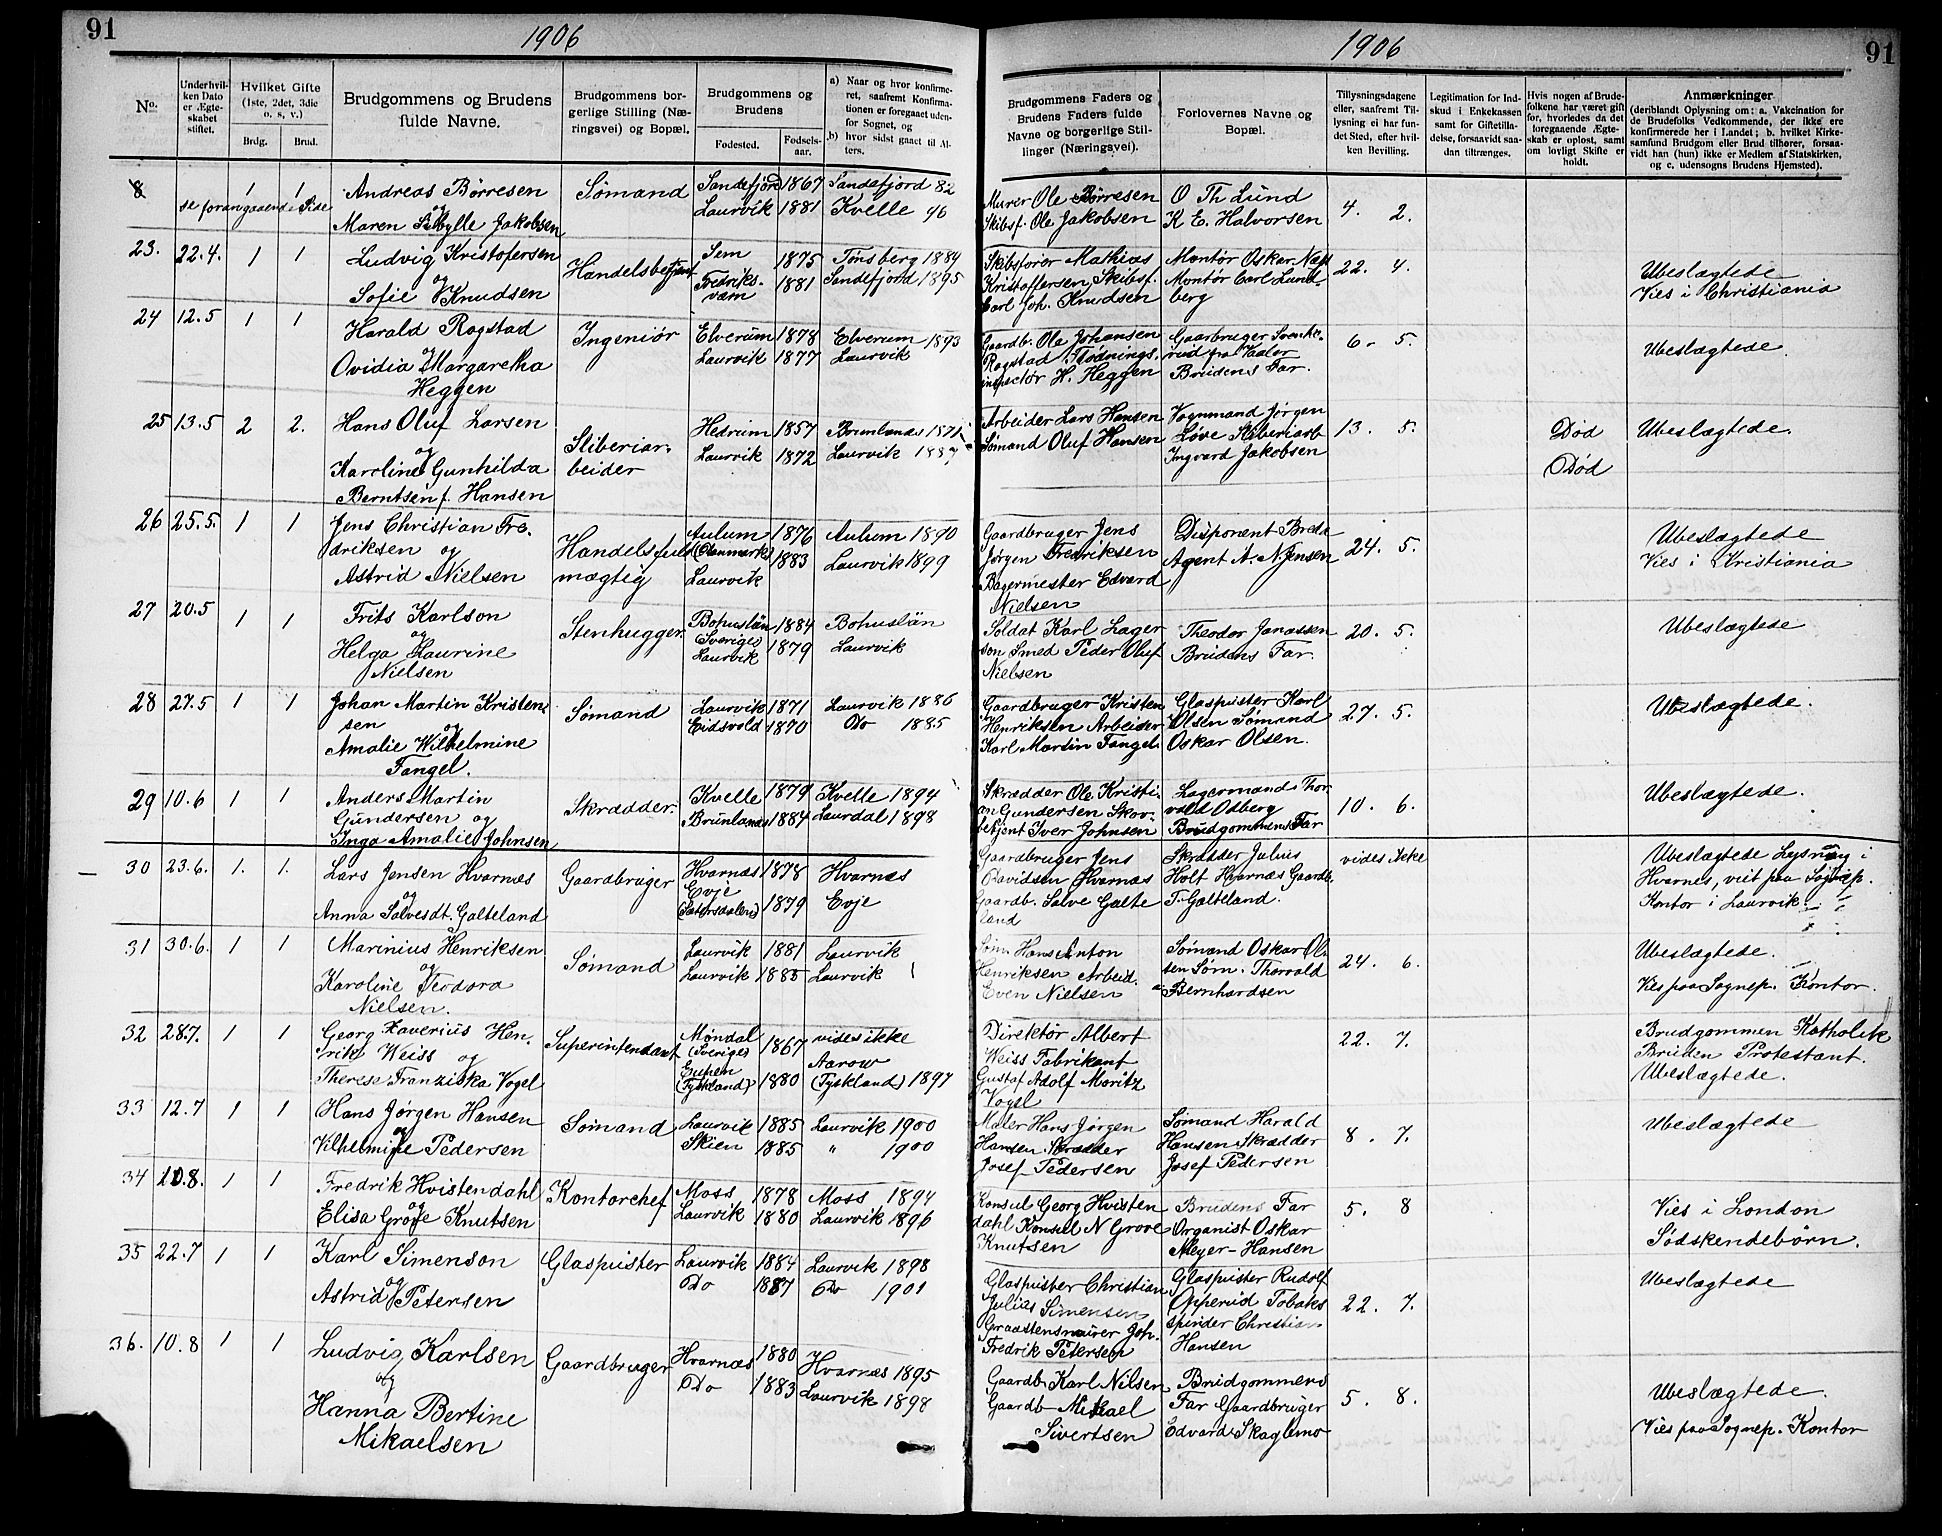 91
1906
No.
Underhvil-
ken Dato
er Ægte-
skabet
stiftet.
Hvilket Gifte
(1ste, 2det, 3die
o. s. v.)
Brdg.
Brud.
Brudgommens og Brudens
fulde Navne.
Brudgommens bor-
gerlige Stilling (Næ-
ringsvei) og Bopæl.
Brudgommens og
Brudens
Fødested.
Fødsels-
aar.
a) Naar og hvor konfirme-
ret, saafremt Konfirma-
tionen er foregaaet uden-
for Sognet, og
b) hvor sidst gaaet til Al-
ters.
8
se forangaaende Side
1 1
Andreas Børresen
og
Maren Sibylle Jakobsen
Sømand
Sandefjord 1867 Sandefjord 82
Laurvik 1881 Kvelle 96
23. 22.4. 1 1
Ludvig Kristofersen
og
Sofie Knudsen
Handelsbetjent
Sem 1875 Tønsberg 1889
Fredriks-
værn 1881 Sandefjord 1895
24 12.5 1 1
Harald Rogstad
og
Ovidia Margaretha
Heggen
Ingeniør
Elverum 1878 Elverum 1893
Laurvik 1877 Laurvik
25 13.5 2 2.
Hans Oluf Larsen
og
Karoline Gunhilda
Berntsen f. Hansen
Sliberiar-
beider
Hedrum 1857 Brunlanæs 1871
Laurvik 1872 Laurvik 1887
26 25.5. 1 1
Jens Christian Fre-
driksen og
Astrid Nielsen
Handelsfuld
mægtig
Aulum 1876 Aulum 1890
(Danmark)
Laurvik 1883 Laurvik 1899
27 20.5 1 1
Frits Karlson
og
Helga Laurine
Nielsen
Stenhugger.
Bohuslän 1884 Bohuslän
(Sverige)
Laurvik 1879 Laurvik
28 27.5 1 1
Johan Martin Kristen-
sen og
Amalie Wilhelmine
Fangel.
Sømand
Laurvik 1871 Laurvik 1886
Eidsvold 1870 Do 1885
29 10.6 1 1
Anders Martin
Gundersen og
Inga Amalie Johnsen
Skrædder.
Kvelle 1879 Kvelle 1894
Brunlanæs 1884 Laurdal 1898
30 23.6. 1. 1.
Lars Jensen Hvarnæs
og
Anna Salvesdt. Galteland
Gaardbruger
Hvarnæs 1878 Hvarnæs
Evje
(Sætersdalen) 1879 Evje
31 30.6. 1 1
Marinius Henriksen
og
Karoline Teodora
Nielsen.
Sømand
Laurvik 1881 Laurvik
Laurvik 1885 Laurvik
32 28.7. 1 1
Georg Xaverius Hen-
rik Weiss og
Therese Franziska Vogel
Superintendant
Møndal
(Sverige) 1867 vides ikke
Eupen Aarow
(Tyskland) 1880 (Tyskland) 1897
33 12.7 1 1
Hans Jørgen Hansen
og
Vilhelmine Pedersen
Sømand
Laurvik 1885 Laurvik 1900
Skien 1885 " 1900
34 10.8. 1 1
Fredrik Hvistendahl
og
Elisa Grove Knutsen
Kontorchef
Moss 1878 Moss 1894
Laurvik 1880 Laurvik 1896
35 22.7 1 1
Karl Simenson
og
Astrid Petersen
Glaspuster
Laurvik 1884 Laurvik 1898
Do 1887 Do 1901
36. 10.8 1 1
Ludvig Karlsen
og
Hanna Bertine
Mikaelsen
Gaardbruger
Hvarnæs 1880 Hvarnæs 1895
Do 1883 Laurvik 1898
1906
91
Brudgommens Faders og
Brudens Faders fulde
Navne og borgerlige Stil-
linger (Næringsvei).
Forlovernes Navne og
Bopæl.
Tillysningsdagene
eller, saafremt Til-
lysning ei har fun-
det Sted, efter hvil-
ken Bevilling.
Legitimation for Ind-
skud i Enkekassen
samt for Giftetilla-
delse, forsaavidt saa-
dan tiltrænges.
Hvis nogen af Brude-
folkene har været gift
før, hvorledes da det
foregaaende Ægte-
skab er opløst, samt
om lovligt Skifte er
holdt.
Anmærkninger
(deriblandt Oplysning om: a. Vakcination for
de Brudefolks Vedkommende, der ikke ere
konfirmerede her i Landet; b. hvilket Kirke-
samfund Brudgom eller Brud tilhører, forsaa-
vidt han (hun) ikke er Medlem af Statskirken,
og c. udensogns Brudens Hjemsted).
Murer Ole Børresen
Skibsf. Ole Jakobsen
O Th Lund
K E. Halvorsen
4. 2.
Skibsfører Mathias
Kristoffersen, Skibsf.
Carl Joh. Knudsen
Montør Oskar Næss
Montør Carl Lund-
berg
22. 4.
Ubeslægtede
Vies i Christiania
Gaardb. Ole Johansen
Rogstad Stødnings-
inspektør H. Heggen
Gaarbruger Svenke-
rud paa Vaaler
Brudens Far.
6. 5.
Ubeslægtede
Arbeider Lars Hansen
Sømand Oluf Hansen
Vognmand Jørgen
Løve Sliberiarb
Ingvard Jakobsen
13. 5.
Død
Død
Ubeslægtede.
Gaardbruger Jens
Jørgen Fredriksen
Bagermester Edvard
Nielsen
Disponent Breda
Agent A. N. Jensen
24. 5.
Ubeslægtede
Vies i Kristiania
Soldat Karl Lager
son Smed Peder Oluf
Nielsen
Theodor Janassen
Brudens Far.
20. 5.
Ubeslægtede
Gaardbruger Kristen
Henriksen Arbeider
Karl Martin Fangel.
Glaspuster Karl
Olsen Sømand
Oskar Olsen.
27. 5.
Ubeslægtede.
Skrædder Ole Kristi-
an Gundersen Skov-
betjent Iver Johnsen
Lagermand Thor
vald Odberg
Brudgommens Far
10. 6.
Ubeslægtede.
Gaardbruger Jens
Davidsen Hvarnæs
Gaardb. Salve Galte
land
Skrædder Julius
Holt Hvarnæs Gaardb.
T. Galteland.
vides ikke
Ubeslægtede Lysning i
Hvarnes, viet paa Sognep.
Kontor i Laurvik.
Søm. Hans Anton
Henriksen Arbeid.
Even Nielsen
Sømand Oskar Ol-
sen Søm. Thorvald
Bernhardsen
24. 6.
Ubeslægtede.
Vies paa Sognep. Kontor.
Direktør Albert
Weiss Fabrikant
Gustaf Adolf Moritz
Vogel
22. 7.
Brudgommen Katholik
Bruden Protestant.
Ubeslægtede.
Maler Hans Jørgen
Hansen Skrædder
Josef Pedersen
Sømand Harald
Hansen Skrædder
Josef Pedersen
8. 7.
Ubeslægtede
Konsul Georg Hvisten
dahl Konsul N Grove
Knutsen
Brudens Far
Organist Oskar
Meyer-Hansen
5. 8
Vies i London
Sødskendebørn.
Glaspuster Christian
Julius Simensen
Graastensmurer Joh.
Fredrik Petersen
Glaspuster Rudolf
Opperud Tobaks
spinder Christian
Hansen
22. 7.
Ubeslægtede
Gaardb. Karl Nilsen
Gaardb Mikael
Sivertsen
Brudgommens
Far Gaardbruger
Edvard Skaglemo
5. 8.
Ubeslægtede.
Vies paa Sognep. Kontor